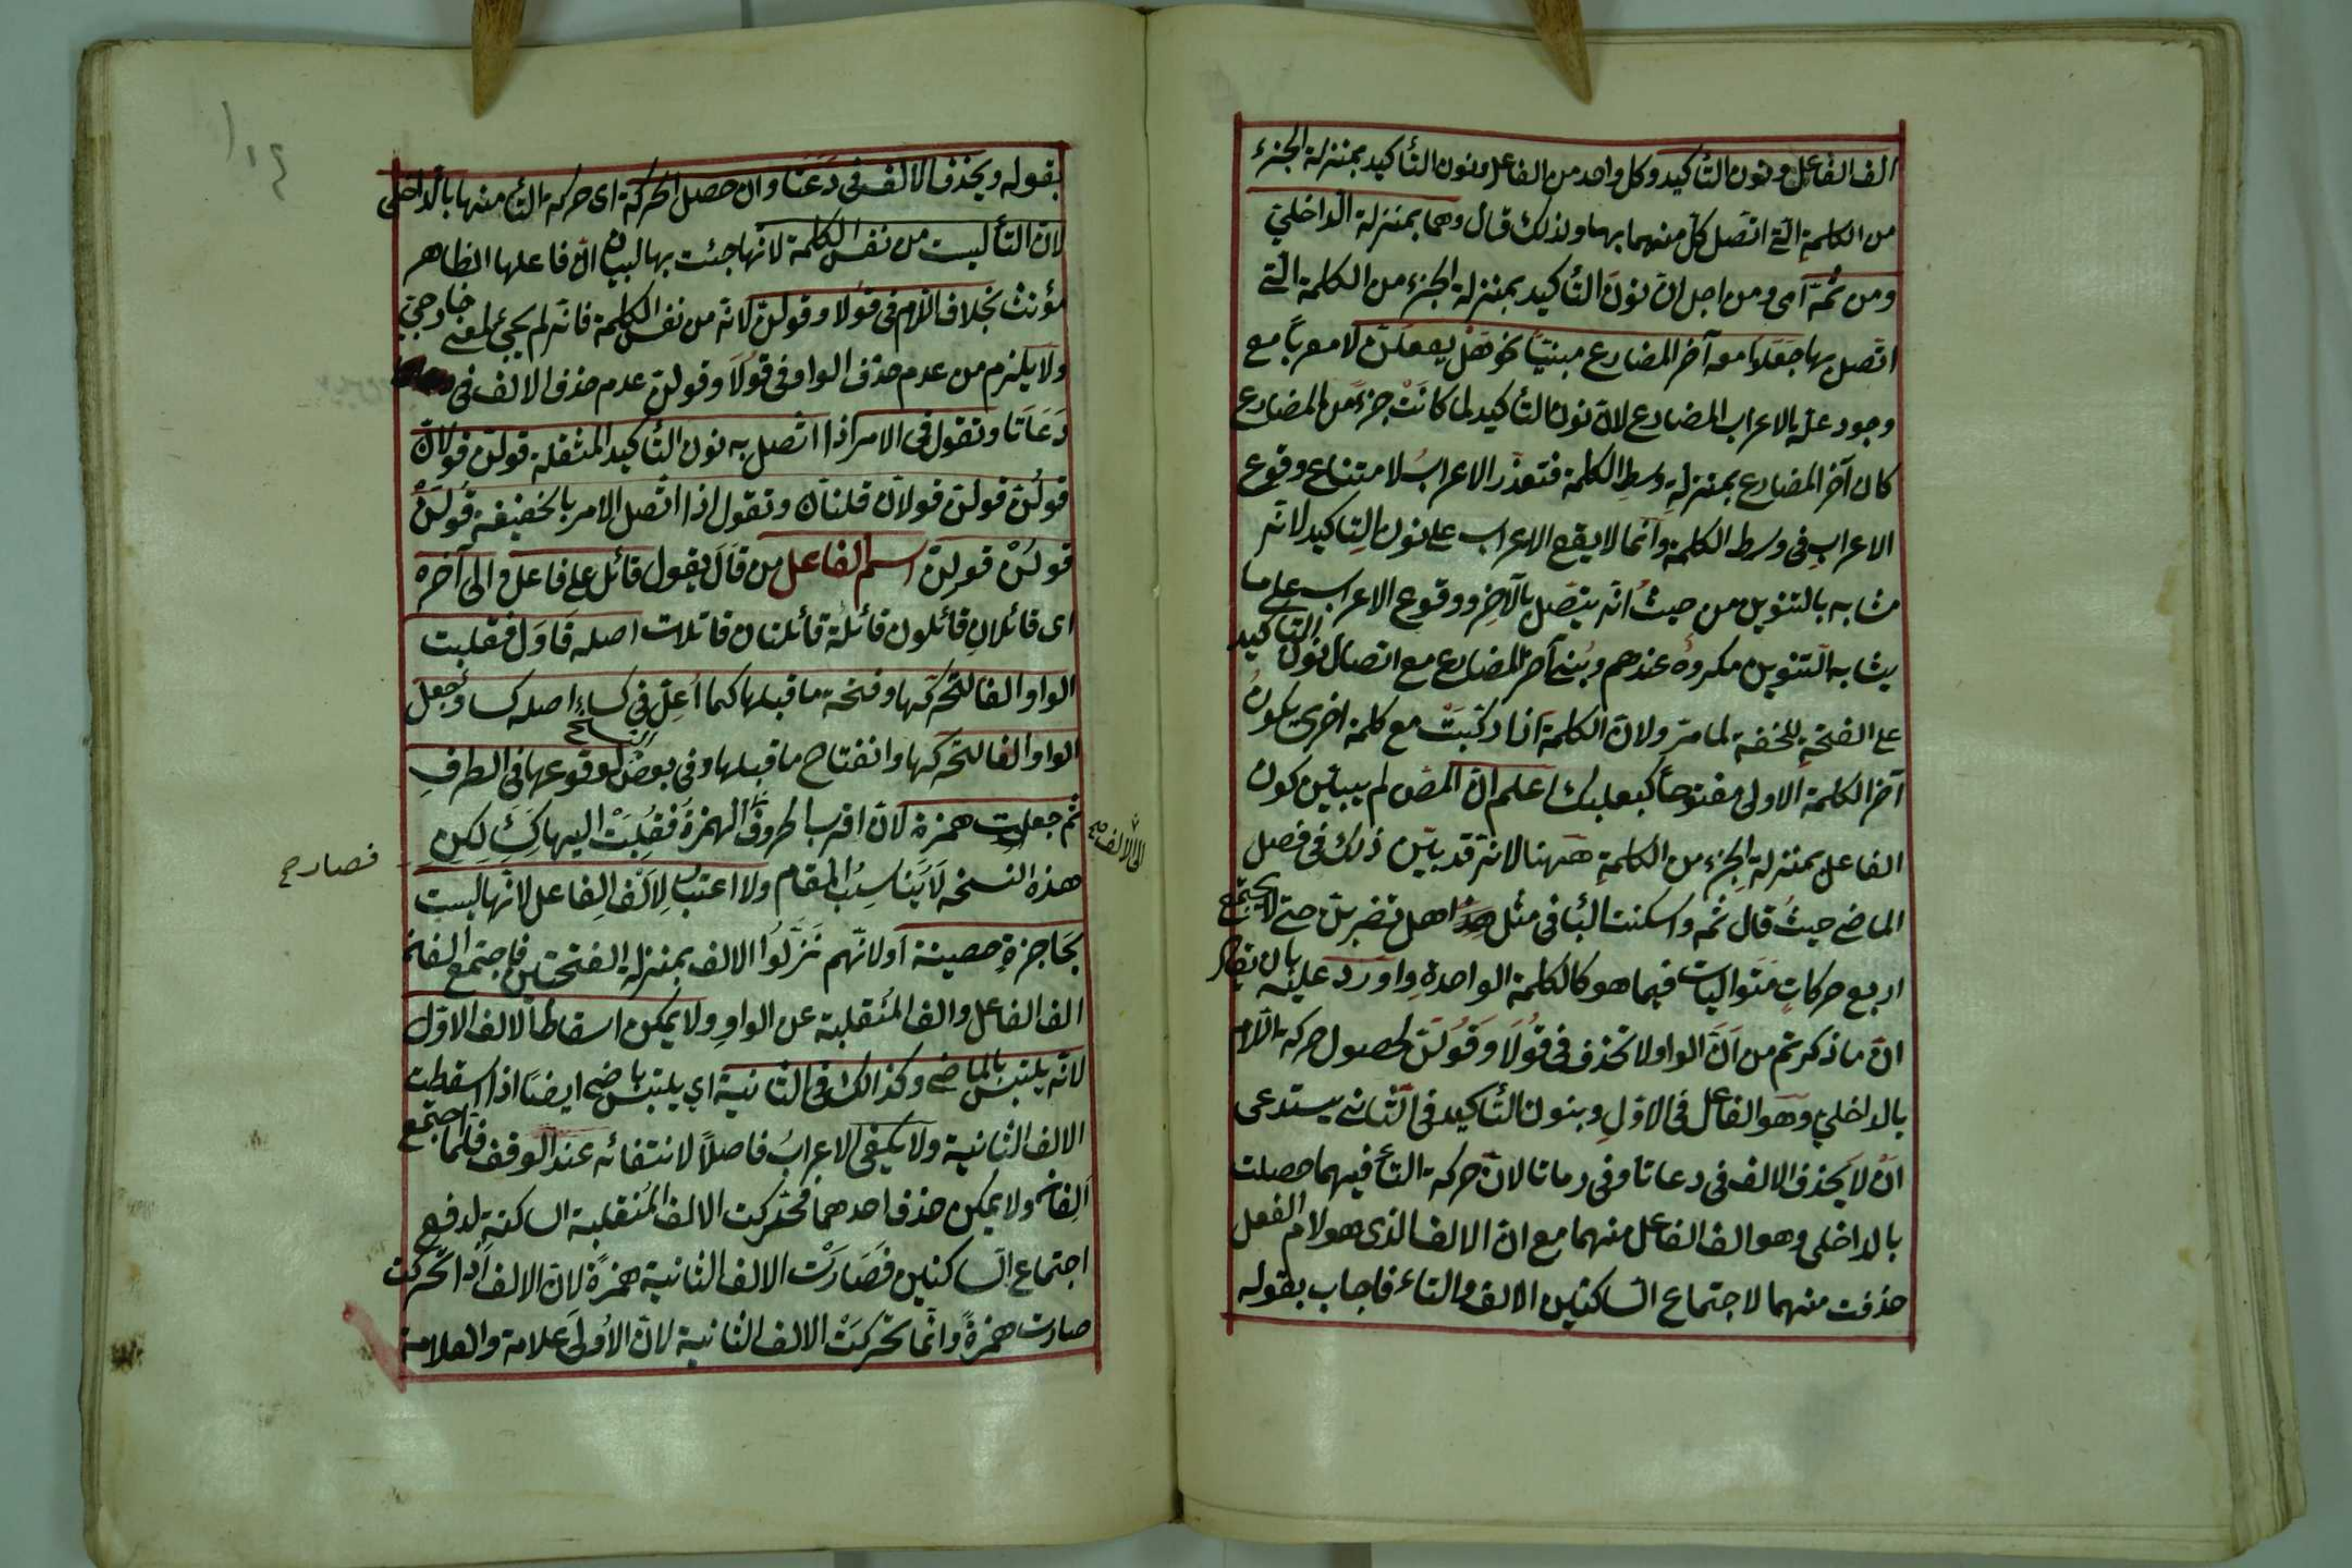 الف الفاعل ونون التأكيد وكل واحد من الفاعل ونون التأكيد بمنزلة الجزء
من الكلمة التي اتصل كل منهما بها ولذلك قال وهما بمنزلة الداخلي
ومن ثمة اي ومن اجل ان نون التأكيد بمنزلة الجزء من الكلمة التي
اتصل بها جعلوا معه آخر المضارع مبنيا نحو هل يفعلن لا معربا مع
وجود علة الاعراب المضارع لان نون التأكيد لما كانت جزء من المضارع
كان آخر المضارع بمنزلة وسط الكلمة فتعذر الاعراب لامتناع وقوع
الاعراب في وسط الكلمة وانما لا يقع الاعراب على نون التاكيد لانه
مشابه بالتنوين من حيث انه يتصل بالآخر ووقوع الاعراب على ما
يشابه التنوين مكروه عندهم وبني آخر المضارع مع اتصال نون التاكيد
على الفتحة للخفة لما مر ولان الكلمة اذا ركبت مع كلمة اخرى يكون
آخر الكلمة الاولى مفتوحا كبعلبك اعلم ان المص لم يبين كون
الفاعل بمنزلة الجزء من الكلمة ههنا لانه قد بين ذلك في فصل
الماضي حيث قال ثمه واسكنت البا في مثل هل تضربن حتى لا يجتمع
اربع حركات متواليات فيما هو كالكلمة الواحدة واورد عليه بان يقال
ان ما ذكرتم من ان الواو لا تحذف في قولا وقولن لحصول حركة اللام
بالداخلي وهو الفاعل في الاول وبنون التأكيد في الثاني يستدعى
ان لا يحذف الالف في دعاتا وفي رماتا لان حركة التأ فيهما حصلت
بالداخلى وهو الف الفاعل منهما مع ان الالف الذى هو لام الفعل
حذفت منهما لاجتماع الساكنين الالف والتاء فاجاب بقوله
بقوله ويحذف الالف في دعتا وان حصل الحركة اى حركة التأ منها بالداخلى
لان التأ ليست من نفس الكلمة لانها جئت بها لبيان ان فاعلها الظاهر
مؤنث بخلاف اللام في قولا وقولن لانه من نفس الكلمة فانه لم يجئ لمعنى خارجي
ولا يلزم من عدم حذف الواو في قولا وقولن عدم حذف الالف في
دعاتا وتقول في الامر اذا اتصل به نون التأكيد المثقلة قولن قولان
قولن قولن قولان قلنان وتقول اذا اتصل الامر بالخفيفة قولن
قولن قولن اسم الفاعل من قال يقول قائل على فاعل والى آخره
اى قائلان قائلون قائلة قائلتان قائلات اصله قاول فقلبت
الواو الفا لتحركها وفتحة ما قبلها كما اعل في كساء اصله كساو جعل
الواو الفا لتحركها وانفتاح ما قبلها وفي بعض لوقوعها في الطرف
ثم جعلت همزة لان اقرب الحروف الهمزة فقلبت اليها لكن
الى الالف صح
فصار ح
هذه النسخه لا يناسب المقام ولا اعتبار لالف الفاعل لانها ليست
بحاجزة حصينة او لانهم نزلوا الالف بمنزلة الفتحتين فاجتمع الفان
الف الفاعل والف المنقلبة عن الواو ولا يمكن اسقاط الالف الاول
لانه يلتبس بالماضي وكذالك في الثانية اي يلتبس بماضي ايضا اذا اسقطت
الالف الثانية ولا يكفى الاعراب فاصلا لانتفائه عند الوقف فلما اجتمع
الفان ولا يمكن حذف احدهما فحركت الالف المنقلبة الساكنة لدفع
اجتماع الساكنين فصارت الالف الثانية همزة لان الالف اذا تحركت
صارت همزة وانما تحركت الالف الثانية لان الأولى علامة والعلامة